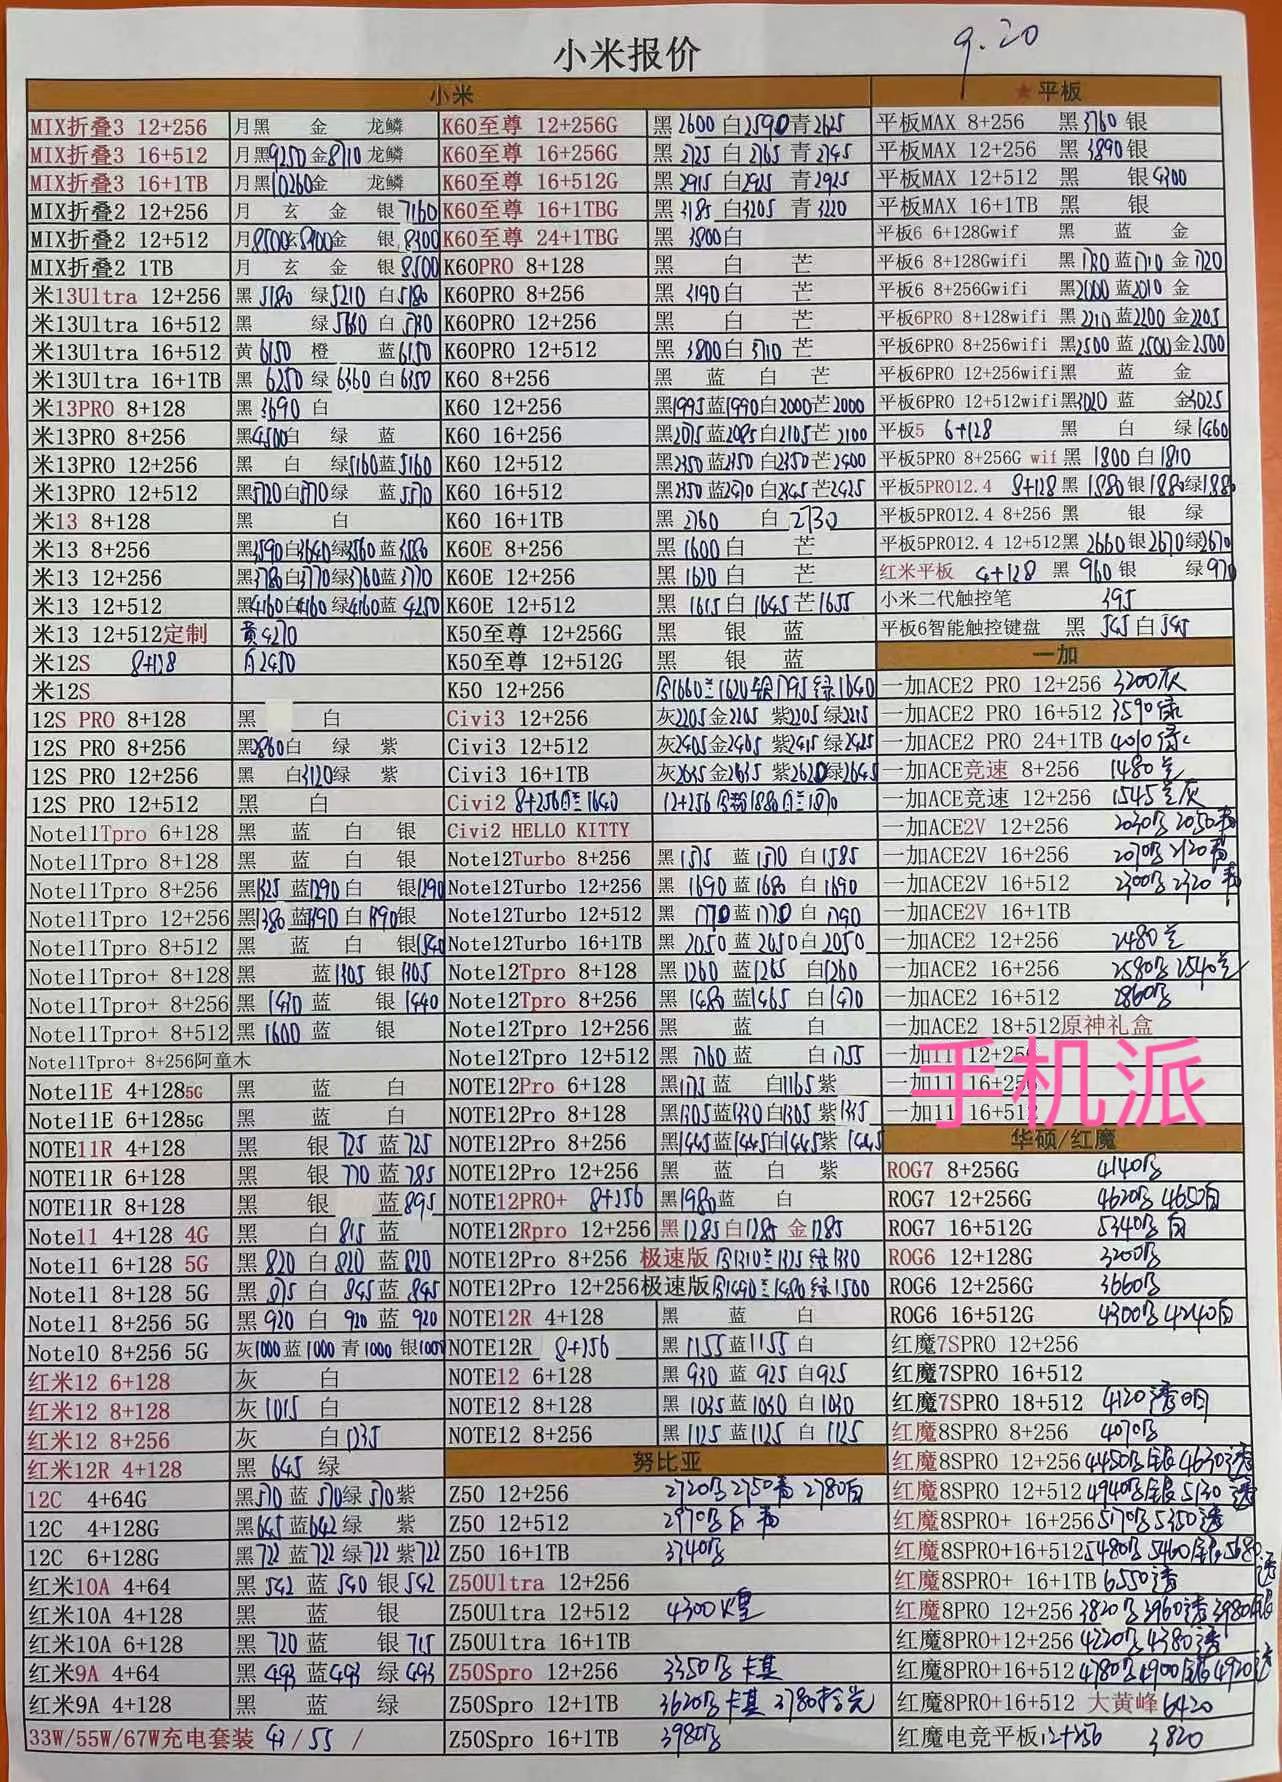 小米报价
9.20
小米
MIX折叠3 12+256 月黑 金 龙鳞
MIX折叠3 16+512 月黑9250金8710龙鳞
MIX折叠3 16+1TB 月黑10260金 龙鳞
MIX折叠2 12+256 月 玄 金 银7160
MIX折叠2 12+512 月8500玄8400金 银8300
MIX折叠2 1TB 月 玄 金 银8500
米13Ultra 12+256 黑5180 绿5210 白5180
米13Ultra 16+512 黑 绿5660 白
米13Ultra 16+512 黄6150 橙 蓝6150
米13Ultra 16+1TB 黑6250 绿6360 白6350
米13PRO 8+128 黑3690 白
米13PRO 8+256 黑4500白 绿 蓝
米13PRO 12+256 黑 白 绿5160蓝5160
米13PRO 12+512 黑 白 绿 蓝
米13 8+128 黑 白
米13 8+256 黑3590白3640绿3560蓝3580
米13 12+256 黑3780白3770绿3760蓝3770
米13 12+512 黑4160白4160绿4160蓝4250
米13 12+512定制 黄4270
米12S 8+128 白2450
米12S
12S PRO 8+128 黑 白
12S PRO 8+256 黑2860白 绿 紫
12S PRO 12+256 黑 白3120绿 紫
12S PRO 12+512 黑 白
Note11Tpro 6+128 黑 蓝 白 银
Note11Tpro 8+128 黑 蓝 白 银
Note11Tpro 8+256 黑1325蓝1290白 银1290
Note11Tpro 12+256 黑1380蓝1390白1390银
Note11Tpro 8+512 黑 蓝 白 银1540
Note11Tpro+ 8+128 黑 蓝1305 银1305
Note11Tpro+ 8+256 黑1430 蓝 银1440
Note11Tpro+ 8+512 黑1600 蓝 银
Note11Tpro+ 8+256阿童木
Note11E 4+1285G 黑 蓝 白
Note11E 6+1285G 黑 蓝 白
NOTE11R 4+128 黑 银725 蓝725
NOTE11R 6+128 黑 银770 蓝785
NOTE11R 8+128 黑 银 蓝895
Note11 4+128 4G 黑 白815 蓝
Note11 6+128 5G 黑820 白820 蓝820
Note11 8+128 5G 黑875 白845 蓝845
Note11 8+256 5G 黑920 白920 蓝920
Note10 8+256 5G 灰1000蓝1000青1000银1000
红米12 6+128 灰 白
红米12 8+128 灰1015 白
红米12 8+256 灰 白1235
红米12R 4+128 黑645 绿
12C 4+64G 黑570蓝570绿570紫
12C 4+128G 黑645蓝642绿 紫
12C 6+128G 黑722蓝722绿722紫722
红米10A 4+64 黑542 蓝540 银542
红米10A 4+128 黑 蓝 银
红米10A 6+128 黑720 蓝 银715
红米9A 4+64 黑493 蓝493 绿493
红米9A 4+128 黑 蓝 绿
33W/55W/67W充电套装 43/55/
K60至尊 12+256G 黑2600白2590青2625
K60至尊 16+256G 黑2725白2765青2745
K60至尊 16+512G 黑2915白2925青2925
K60至尊 16+1TBG 黑3185白3205青3220
K60至尊 24+1TBG 黑3800白
K60PRO 8+128 黑 白 芒
K60PRO 8+256 黑3190白 芒
K60PRO 12+256 黑 白 芒
K60PRO 12+512 黑3800白3710芒
K60 8+256 黑 蓝 白 芒
K60 12+256 黑1995蓝1990白2000芒2000
K60 16+256 黑2075蓝2085白2105芒2100
K60 12+512 黑2350蓝2350白2350芒2400
K60 16+512 黑2350蓝2470白2445芒2425
K60 16+1TB 黑2760 白2730
K60E 8+256 黑1600白 芒
K60E 12+256 黑1620白 芒
K60E 12+512 黑1615白1645芒1655
K50至尊 12+256G 黑 银 蓝
K50至尊 12+512G 黑 银 蓝
K50 12+256 白1660兰1620银1795绿1640
Civi3 12+256 灰2205金2205紫2205绿2215
Civi3 12+512 灰2405金2405紫2415绿2425
Civi3 16+1TB 灰2635金2635紫2620绿2645
Civi2 8+256 1640 12+256 1880 1870
Civi2 HELLO KITTY
Note12Turbo 8+256 黑1575 蓝1570 白1585
Note12Turbo 12+256 黑1690 蓝1680 白1690
Note12Turbo 12+512 黑1770蓝1770白1790
Note12Turbo 16+1TB 黑2050蓝2050白2050
Note12Tpro 8+128 黑1260 蓝1265 白1260
Note12Tpro 8+256 黑1480蓝1465 白1470
Note12Tpro 12+256 黑 蓝 白
Note12Tpro 12+512 黑1760蓝 白1755
NOTE12Pro 6+128 黑1175蓝 白1165紫
NOTE12Pro 8+128 黑1305蓝1330白1305紫1335
NOTE12Pro 8+256 黑1445蓝1445白1445紫1445
NOTE12Pro 12+256 黑 蓝 白 紫
NOTE12PRO+ 8+256 黑1980蓝 白
NOTE12Rpro 12+256 黑1285白1285金1285
NOTE12Pro 8+256 极速版 白1310兰1325绿1330
NOTE12Pro 12+256极速版 白1490兰1480绿1500
NOTE12R 4+128 黑 蓝 白
NOTE12R 8+256 黑1155蓝1155白
NOTE12 6+128 黑930 蓝925 白925
NOTE12 8+128 黑1035蓝1030 白1030
NOTE12 8+256 黑1125 蓝1125 白1125
努比亚
Z50 12+256 2720黑 2750青 2780白
Z50 12+512 2970黑白青
Z50 16+1TB 3740黑
Z50Ultra 12+256
Z50Ultra 12+512 4300
Z50Ultra 16+1TB
Z50Spro 12+256 3350黑 卡其
Z50Spro 12+1TB 3620黑 卡其 3780
Z50Spro 16+1TB 3980黑
★平板
平板MAX 8+256 黑3760 银
平板MAX 12+256 黑3890银
平板MAX 12+512 黑 银4300
平板MAX 16+1TB 黑 银
平板6 6+128Gwif 黑 蓝 金
平板6 8+128Gwifi 黑1730蓝1710金1720
平板6 8+256Gwifi 黑2000蓝2010金
平板6PRO 8+128wifi 黑2210蓝2200金2205
平板6PRO 8+256wifi 黑2500蓝2500金2500
平板6PRO 12+256wifi黑 蓝 金
平板6PRO 12+512wifi黑3020 蓝 金3025
平板5 6+128 黑 白 绿1460
平板5PRO 8+256G wif 黑1800白1810
平板5PRO12.4 8+128 黑1880银1880绿1880
平板5PRO12.4 8+256 黑 银 绿
平板5PRO12.4 12+512黑2660银2670绿2670
红米平板 4+128 黑960银 绿970
小米二代触控笔 395
平板6智能触控键盘 黑545白545
一加
一加ACE2 PRO 12+256 3200灰
一加ACE2 PRO 16+512 3590绿
一加ACE2 PRO 24+1TB 4010绿
一加ACE竞速 8+256 1480兰
一加ACE竞速 12+256 1545兰灰
一加ACE2V 12+256 2030黑 2050青
一加ACE2V 16+256 2070黑 2120青
一加ACE2V 16+512 2300黑 2320青
一加ACE2V 16+1TB
一加ACE2 12+256 2480兰
一加ACE2 16+256 2580黑 2540兰
一加ACE2 16+512 2860黑
一加ACE2 18+512原神礼盒
一加11 12+256
一加11 16+256
一加11 16+512
手机派
华硕/红魔
ROG7 8+256G 4140黑
ROG7 12+256G 4620黑 4650白
ROG7 16+512G 5340黑 白
ROG6 12+128G 3200黑
ROG6 12+256G 3660黑
ROG6 16+512G 4300黑 4240白
红魔7SPRO 12+256
红魔7SPRO 16+512
红魔7SPRO 18+512 4120透明
红魔8SPRO 8+256 4070黑
红魔8SPRO 12+256 4450黑银 4630透
红魔8SPRO 12+512 4940黑银 5130透
红魔8SPRO+ 16+256 5170黑 5350透
红魔8SPRO+16+512 5480黑 5460银 5680透
红魔8SPRO+ 16+1TB 6550透
红魔8PRO 12+256 3820黑 3960透 3980银
红魔8PRO+12+256 4220黑 4380透
红魔8PRO+16+512 4780黑 4900银 4920透
红魔8PRO+16+512 大黄峰 6420
红魔电竞平板12+256 3820